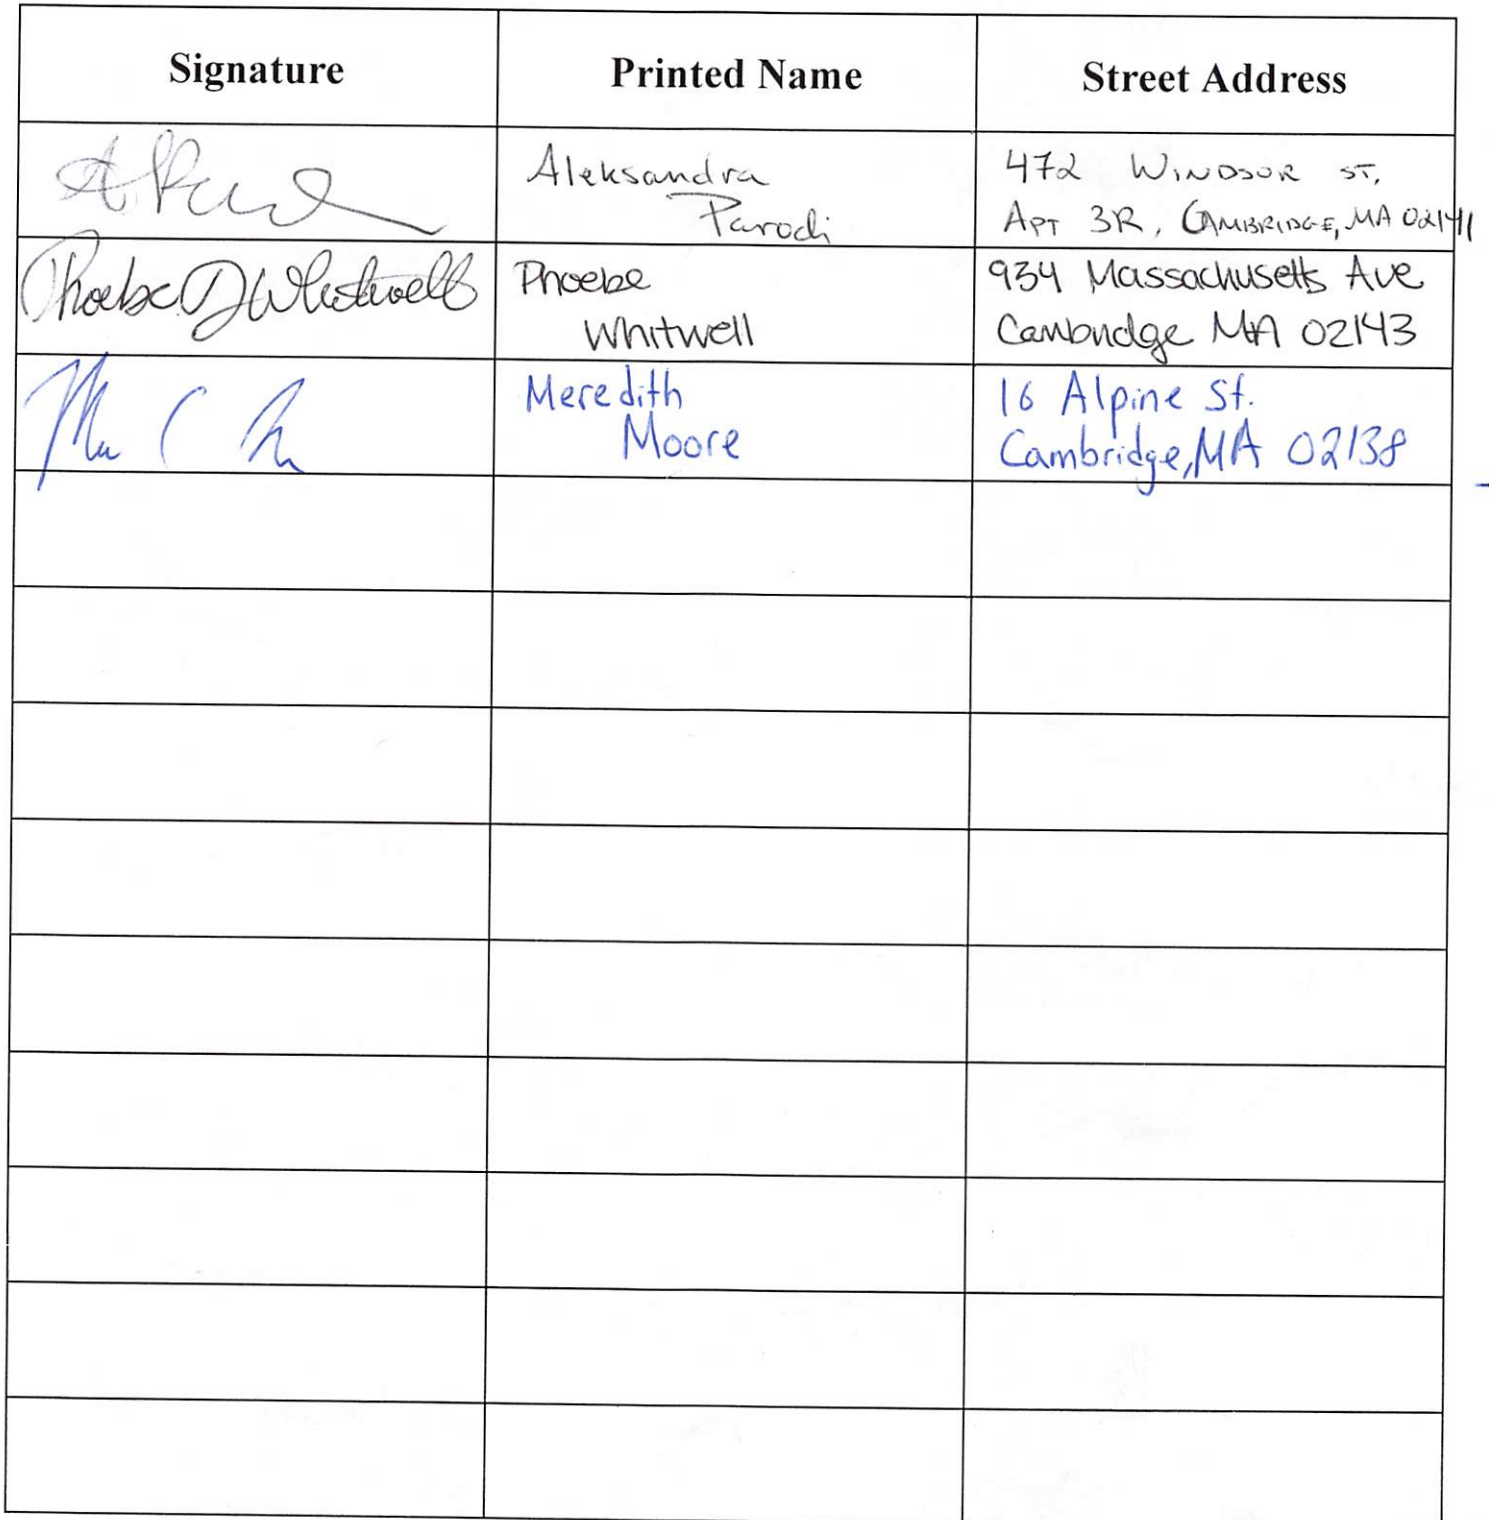 Signature Printed Name Street Address
Aleksandra
Parodi
472 Windsor St,
Apt 3R, Cambridge, MA 02141
Phoebe D Whitwell
Phoebe
Whitwell
934 Massachusetts Ave
Cambridge MA 02143
Meredith
Moore
16 Alpine St.
Cambridge, MA 02138